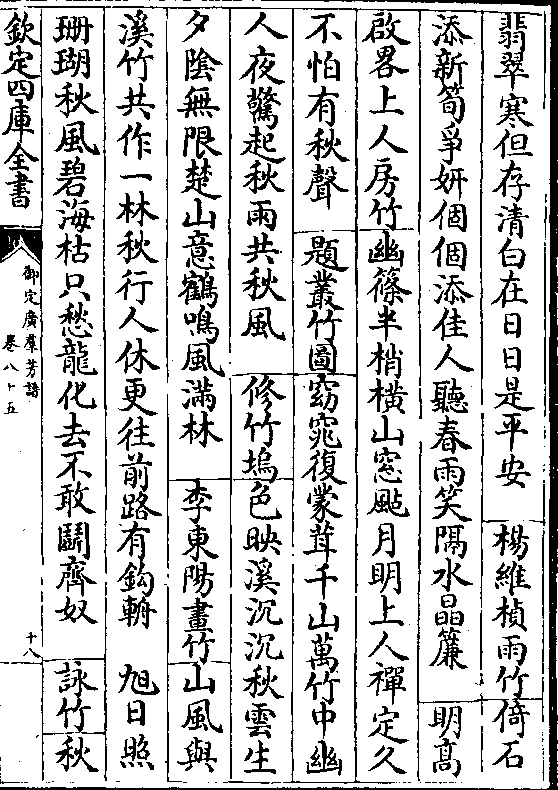 翡翠寒但存清白在日日是平安　楊維楨雨竹倚石
添新筍爭妍個個添佳人聽春雨笑隔水晶簾　明高
啟畧上人房竹幽篠半梢橫山窓颭月明上人禪定久
不怕有秋聲　題叢竹圖窈窕復蒙茸千山萬竹中幽
人夜驚起秋雨共秋風　修竹塢色映溪沉沉秋雲生
夕陰無限楚山意鶴鳴風滿林　李東陽畫竹山風與
溪竹共作一林秋行人休更往前路有鈎輈　旭日照
珊瑚秋風碧海枯只愁龍化去不敢鬭齊奴　詠竹秋
欽定四庫全書
御定廣羣芳譜
卷八十五
十八